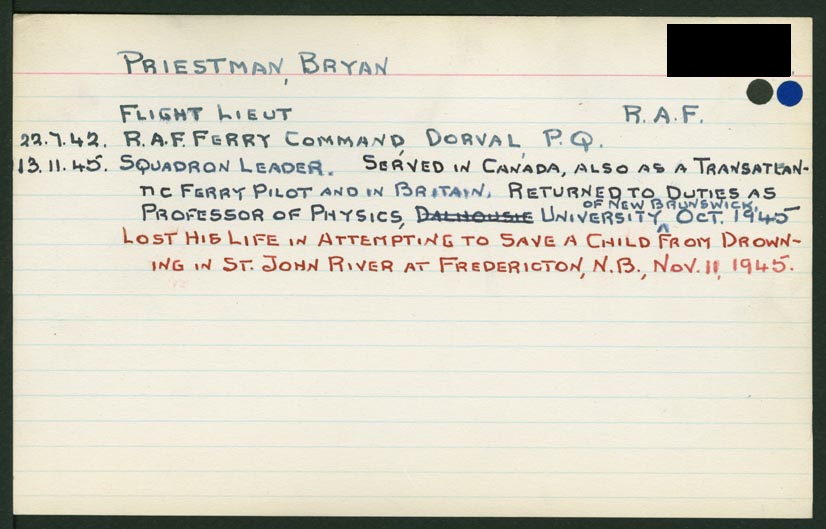 PRIESTMAN, BRYAN
FLIGHT LIEUT R.A.F.
22.7.42. R.A.F. FERRY COMMAND, DORVAL, P.Q.
13.11.45. SQUADRON LEADER. SERVED IN CANADA, ALSO AS A TRANSATLAN-
TIC FERRY PILOT AND IN BRITAIN. RETURNED TO DUTIES AS
OF NEW BRUNSWICK,
PROFESSOR OF PHYSICS, DALHOUSIE UNIVERSITY OCT. 1945
LOST HIS LIFE IN ATTEMPTING TO SAVE A CHILD FROM DROWN-
ING IN ST. JOHN RIVER AT FREDERICTON, N.B., NOV. 11, 1945.